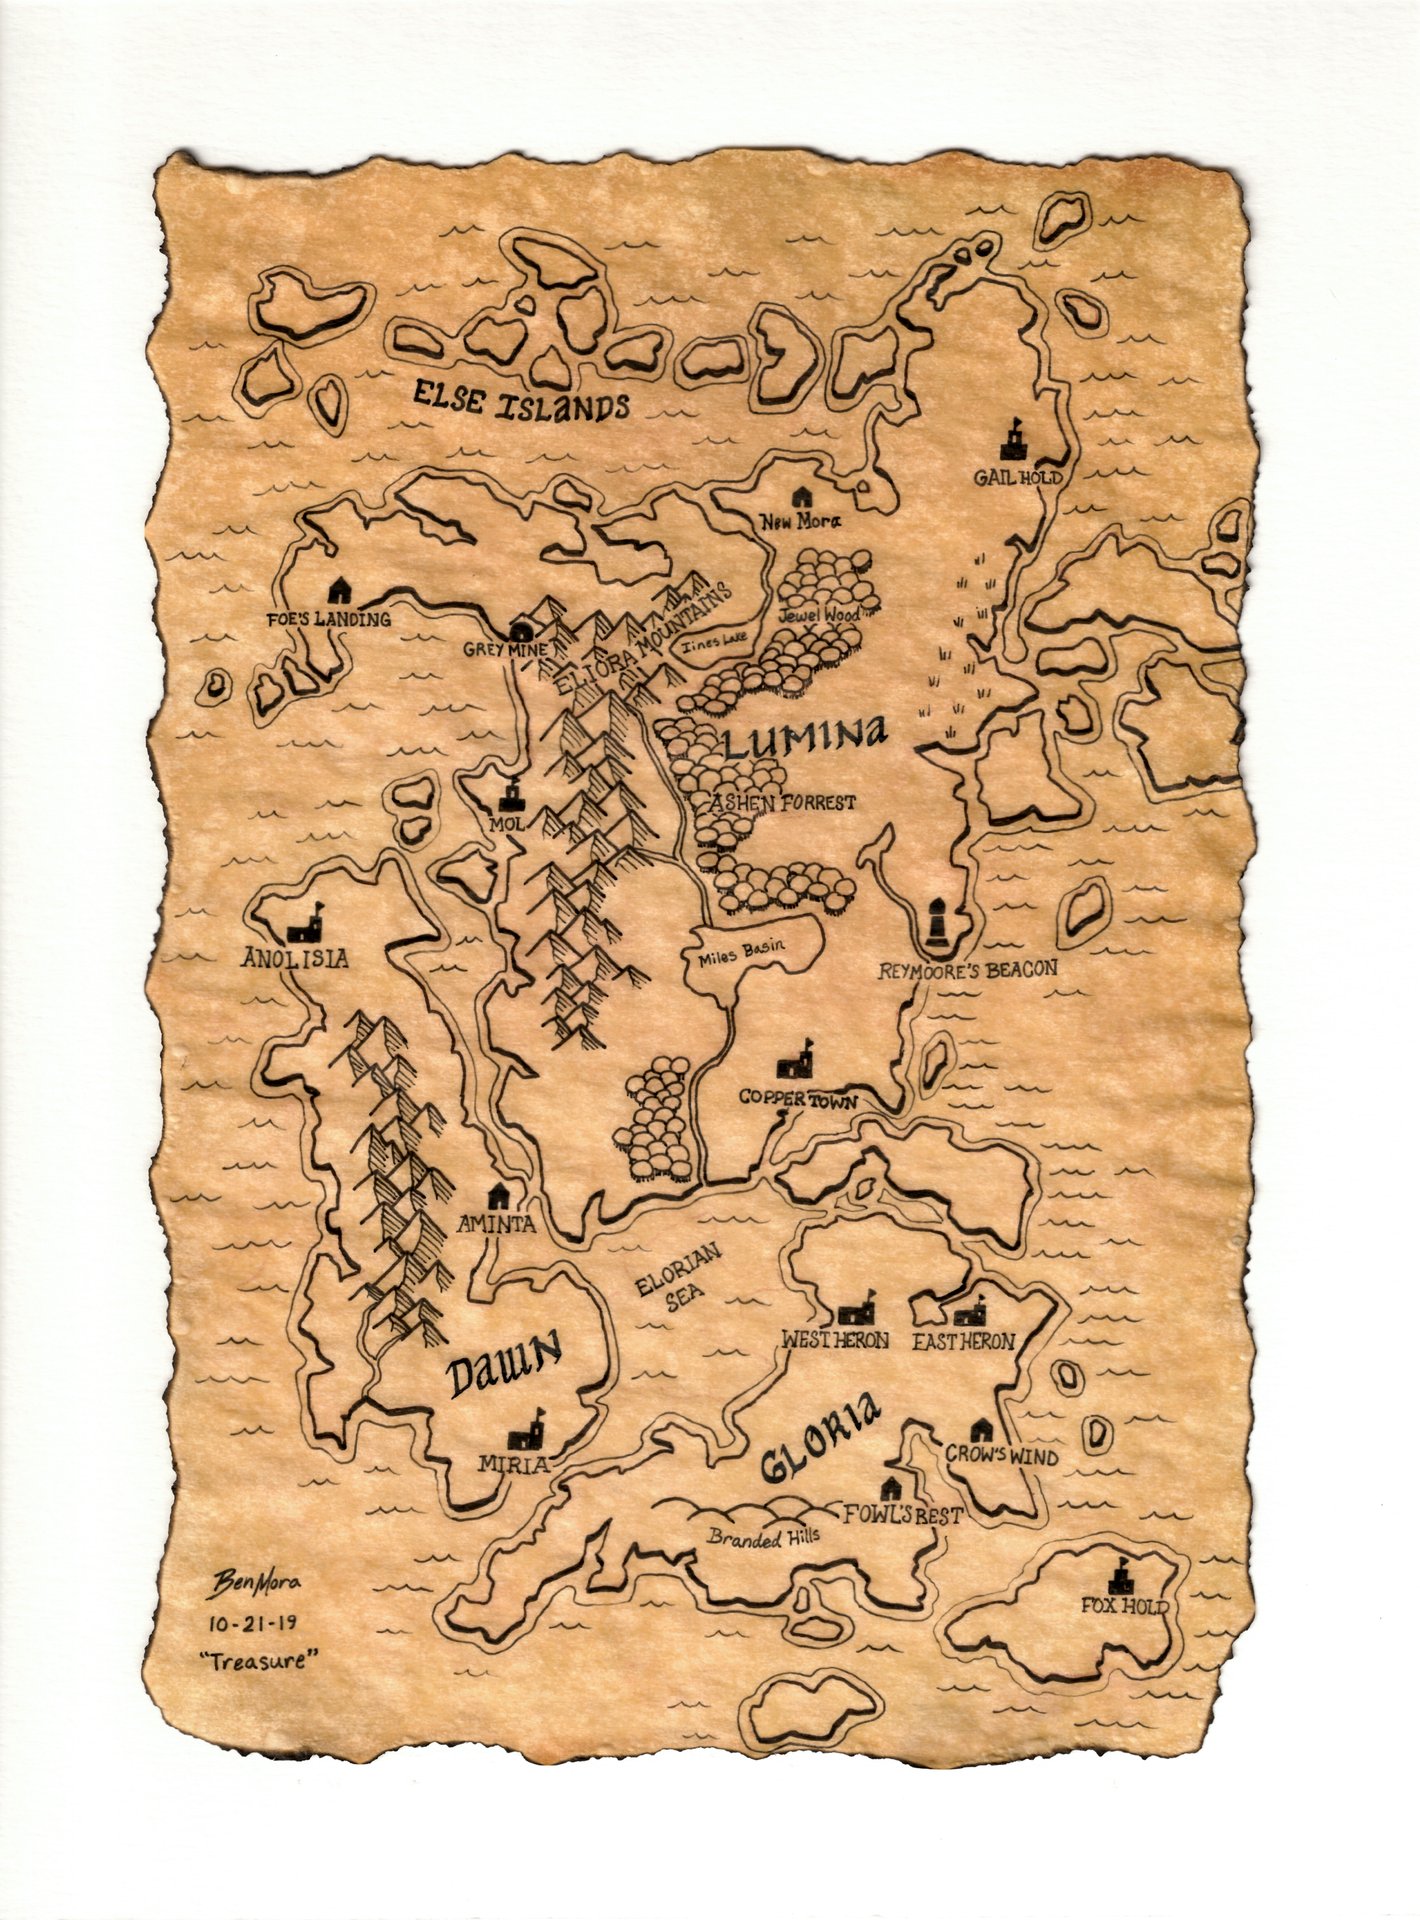 ELSE ISLANDS
GAIL HOLD
New Mora
FOE'S LANDING
Jewel Wood
GREY MINE
ELIORA MOUNTAINS
Iines Lake
LUMINA
ASHEN FORREST
MOL
ANOLISIA
Miles Basin
REYMOORE'S BEACON
COPPER TOWN
AMINTA
ELORIAN
SEA
WEST HERON
EAST HERON
DAWN
GLORIA
MIRIA
CROW'S WIND
FOWL'S REST
Branded Hills
Ben Mora
10-21-19
"Treasure"
FOX HOLD